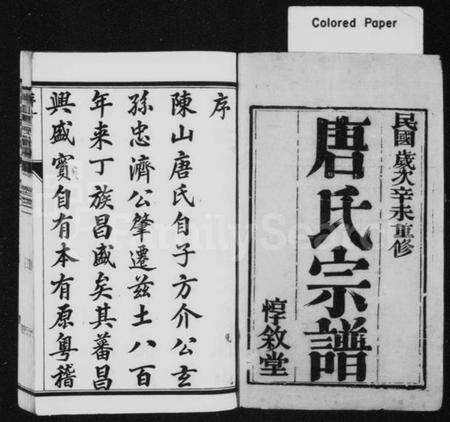 Colored Paper
民國歲次辛未重修
唐氏宗譜
惇敘堂
序
陳山唐氏自子方介公玄
孫忠濟公肇遷茲土八百
年来丁族昌盛矣其蕃昌
興盛實自有本有原粤稽
FamilySearch